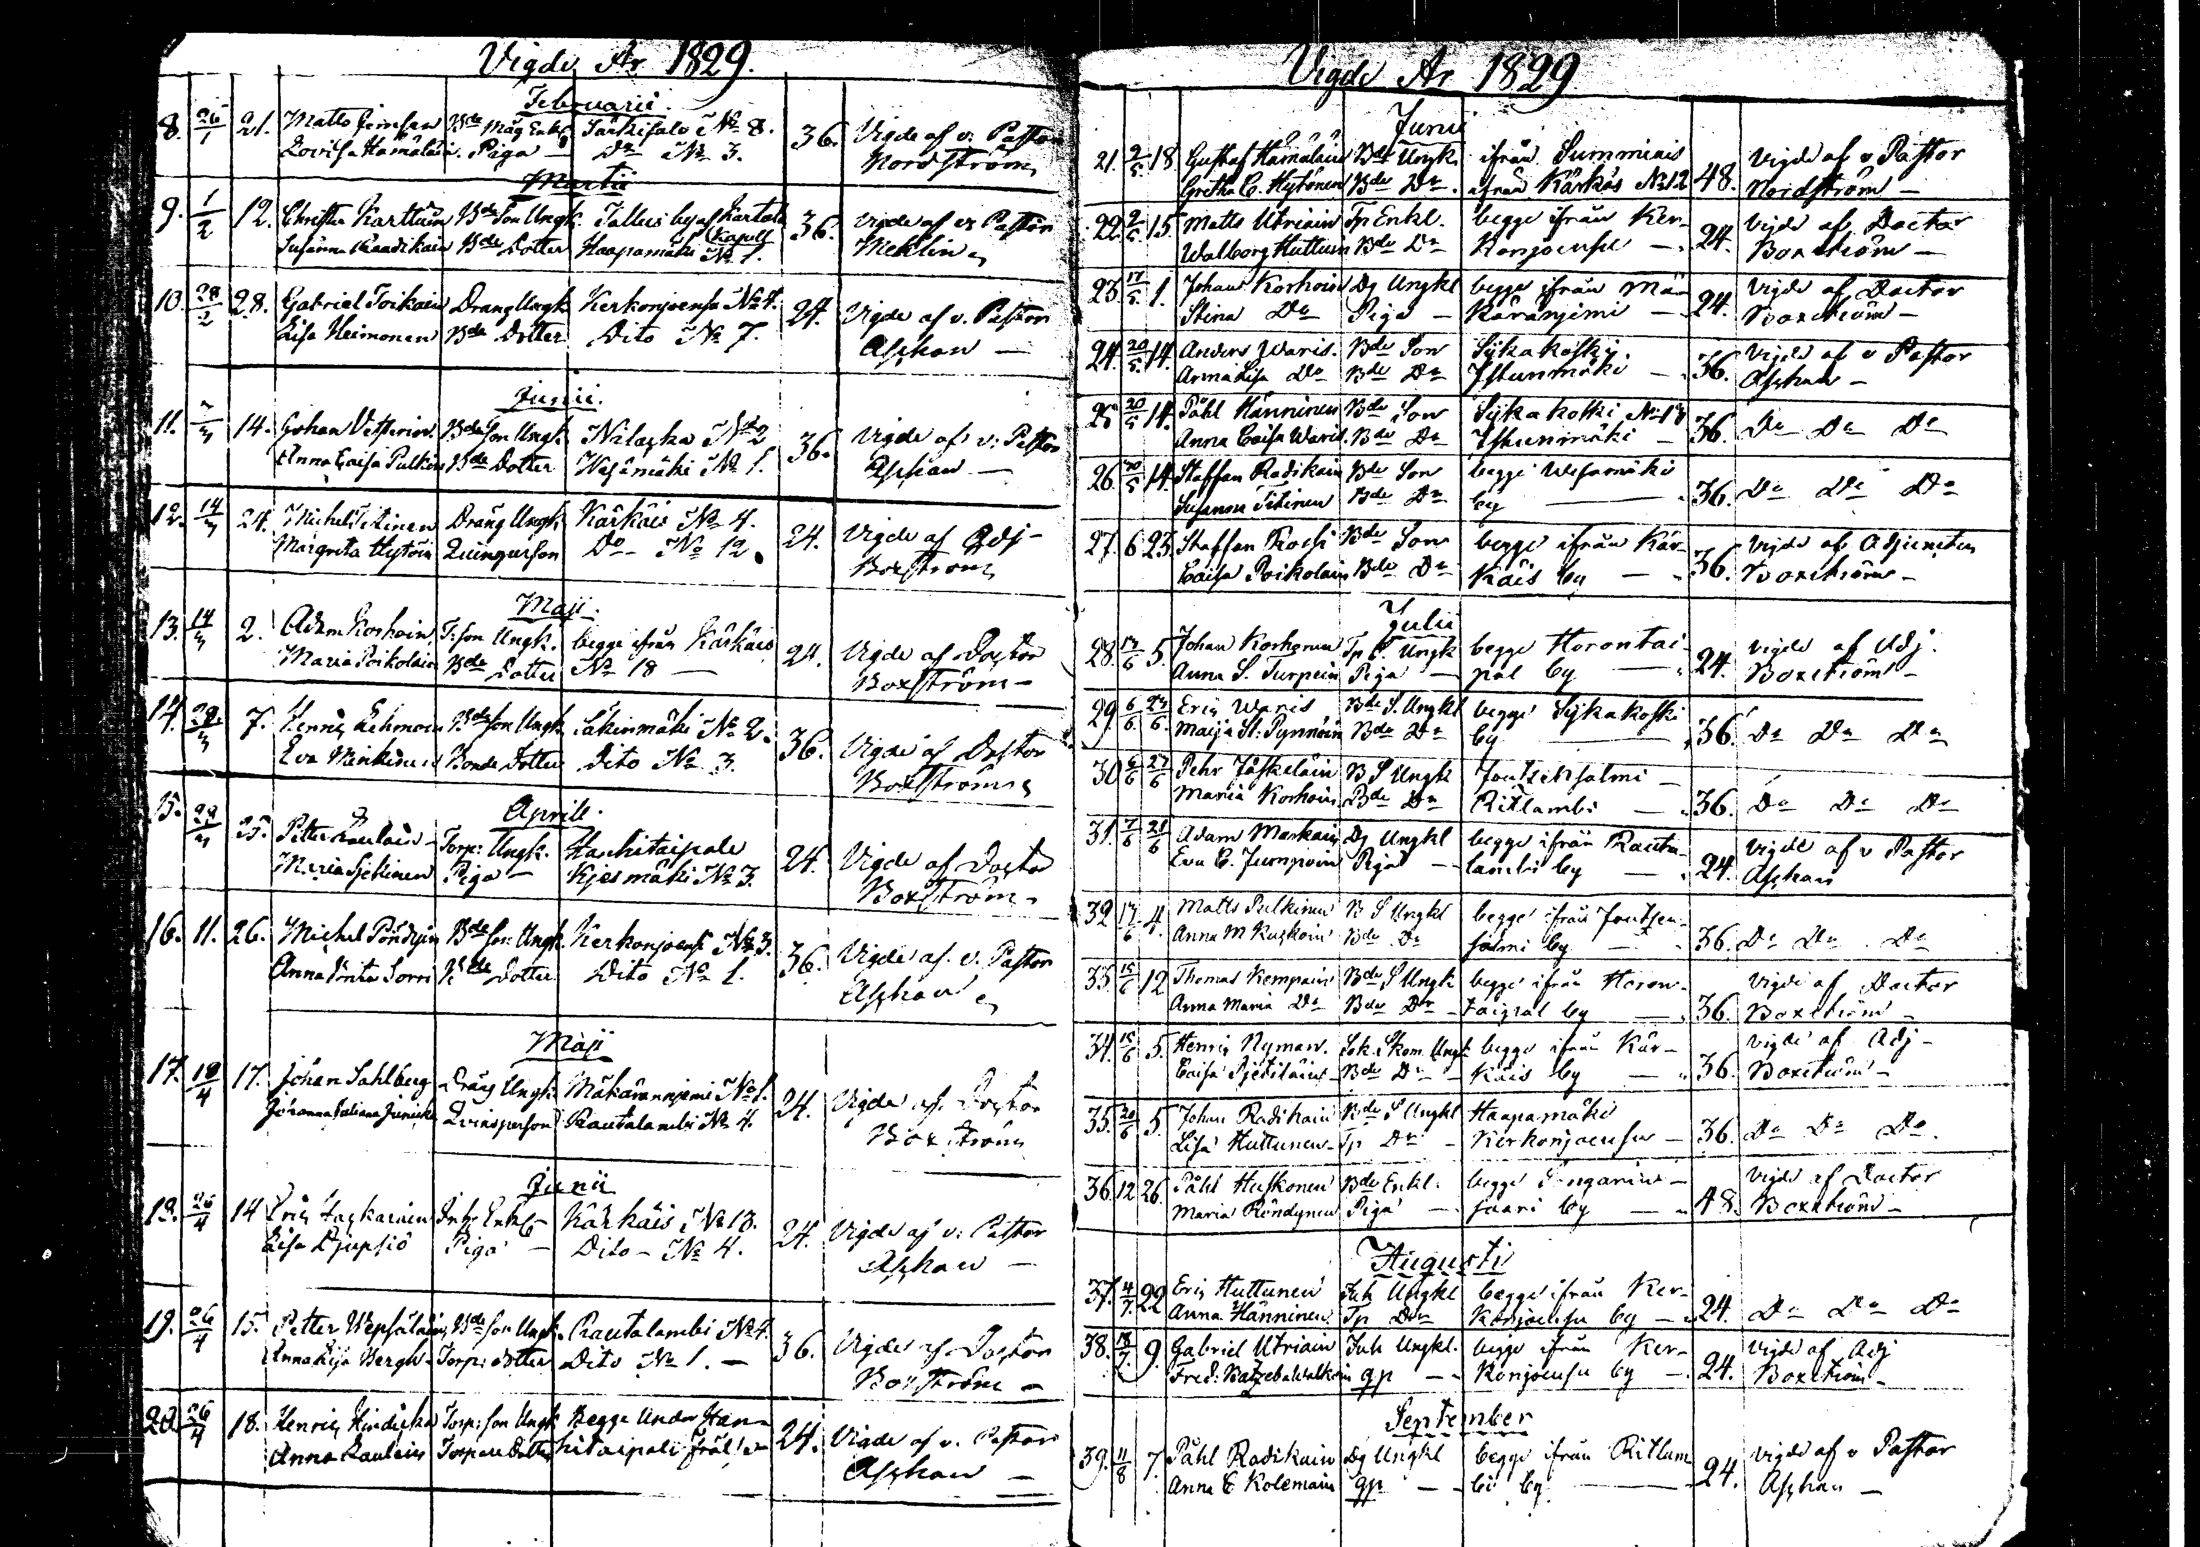 Vigde År 1829.
Februarii.
8. 26/1 21. Matts Bde Måg Enkl Särkisalo No 8. 36. Vigde af v. Pastor
Lovisa Hämäläin. Piga — Do No 3. Nordström
Martii
9. 1/2 12. Christer Karttuin Bde Son Ungk. Tallus by af Kartula 36. Vigde af v. Pastor
Susanna Raadikain Bde Dotter Haapamäki No 1. Kapell Mehlin
10. 28/2 28. Gabriel Toikain Dräng Ungk Kerkonjoensu No 4. 24. Vigde af v. Pastor
Lisa Heimonen Bde Dotter Dito No 7. Asphan —
Junii.
11. 14. Johan Vesterin. Bde Son Ungk. No 2 36. Vigde af v. Pastor
Anna Caisa Pulkin Bde Dotter Wesämäki No 1. Asphan —
12. 14/3 24. Michel Titinen Dräng Ungk Kärkäis No 4. 24. Vigde af Adj-
Margreta Hytöin Quinperson Do — No 12. Boxström
Maji.
13. 14/3 2. Adam Korhoin T. Son Ungk. begge ifrån Kärkäis 24. Vigde af Doctor
Maria Poikolain Bde Dotter No 18 — Boxström —
14. 29/3 7. Henric Lehmoin Bde Son Ungk Säkinmäki No 2. 36. Vigde af Doctor
Eva Minkinen Bonde Dotter Dito No 3. Boxström
Aprill.
15. 29/3 25. Petter Raulain — Torp: Ungk. Hankitaipale 24. Vigde af Doctor
Maria Piga — Kjesmäki No 3. Boxström.
16. 11. 26. Michel Pöndyin Bde Son Ungk. Kerkonjoensu No 3. 36. Vigde af v. Pastor
Anna Brita Sorri Bde Dotter Dito No 1. Asphan
Maji
17. 18/4 17. Johan Sahlberg Dräng Ungk. Mäkärannjemi No 1. 24. Vigde af Doctor
Johanna Juliana Qvinsperson Rautalambi No 4. Boxström
Junii
18. 26/4 14 Eric Jaskarinen Inh: Enkl — Kärkäis No 13. 24. Vigde af v. Pastor
Lisa Djupsjö Piga — Dito — No 4. Asphan —
19. 26/4 15. Petter Wepsäläin Bde Son Ungk. Rautalambi No 4. 36. Vigde af Doctor
Anna Lisa Bergh — Torp: dotter Dito No 1. — Boxström —
20. 26/4 18. Henric Torp: Son Ungk Begge Under Han- 24. Vigde af v. Pastor
Anna Raulain Torpare Dotter kitaipale Asphan —
Vigde År 1829
Junii
21. 2/5 18 Gustaf Hämäläin Bde Ungk. ifrån Summiais 48. Vigde af v Pastor
Gretha C. Hytönen Bde Dr. ifrån Kärkäs No 12 Nordström —
22. 2/5 15. Matts Utriain Tp Enkl. begge ifrån Ker- 24. Vigde af Doctor
Walborg Huttunen Bde Dr Konjoensu — Boxström —
23. 17/5 1. Johan Korhoin Dg Ungkl begge ifrån Mä- 24. Vigde af Doctor
Stina Do Piga — Käränjemi — Boxström —
24. 20/5 14. Anders Waris. Bde Son Sykakoski. 36. Vigde af v Pastor
Anna Lisa Do Bde Dr Istunmäki — Asphan —
25 20/5 14. Påhl Hänninen Bde Son Sykakoski No 18 36. Do Do Do
Anna Caisa Waris. Bde Dr Istunmäki —
26. 20/5 14. Staffan Radikain Bde Son begge Wesamäki 36. Do Do Do
Susanna Titinen Bde Dr by —
27. 6 23. Staffan Bde Son begge ifrån Kär- 36. Vigde af Adjuncten
Caisa Poikolain Bde Dr Käis by — Boxström —
Julii
28. 17/6 5. Johan Korhonen Tp S. Ungk begge Horontai- 24. Vigde af Adj.
Anna S. Turpein Piga — pal by — Boxström —
29. 6/6 27/6. Eric Waris Bde S. Ungkl begge Sykakoski 36. Do Do Do
Maija St. Pynnöin Bde Dr by —
30 6/6 27/6 Pehr Jäskeläin B S Ungk Joutsensalmi — 36. Do Do Do
Maria Korhoin Bde Dr Ritlambi —
31. 7/6 21/6 Adam Markain Dg Ungkl begge ifrån Rauta- 24. Vigde af v Pastor
Eva C. Jumpoin Piga — lambi by — Asphan
32 17/6 4. Matts Pulkinen B S Ungkl begge ifrån Joutsen- 36. Do Do Do
Anna M Kuskoin Bde Dr salmi by —
33 15/6 12 Thomas Kempain Bde S Ungk begge ifrån Horon- 36. Vigde af Doctor
Anna Maria Do Bde Dr — taipal by — Boxström —
34. 15/6 5. Henric Nyman. Sok: Skom. Ungk begge ifrån Kär- 36. Vigde af Adj-
Caisa Pjetiläin — Bde Dr — Käis by — Boxström —
35. 20/6 5. Johan Radikain Bde S Ungkl Haapamäki 36. Do Do Do.
Lisa Huttunen — Tp Dr — Kerkonjoensu —
36. 12 26. Påhl Huskonen Bde Enkl. begge — 48. Vigde af Doctor
Maria Röndynen Piga — saari by — Boxström —
Augusti
37. 4/7 22 Eric Huttunen Inh Ungkl begge ifrån Ker- 24. Do Do Do
Anna Hänninen Tp Dr Konjoensu by —
38. 18/7. 9. Gabriel Utriain Inh Ungkl. begge ifrån Ker- 24. Vigde af Adj
Fred. Batzeba Walkoin qp — Konjoensu by — Boxström —
September
39. 11/8 7. Påhl Radikain Dg Ungkl begge ifrån Ritlam 24. Vigde af v Pastor
Anna C Kolemain qp — bi by. — Asphan —